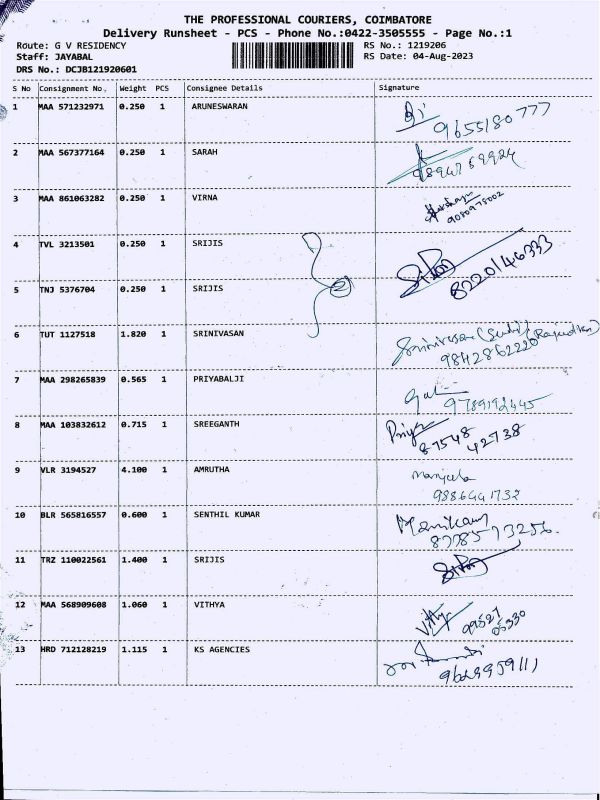 THE PROFESSIONAL COURIERS, COIMBATORE
Delivery Runsheet - PCS - Phone No.:0422-3505555 - Page No.:1
Route: G V RESIDENCY RS No.: 1219206
Staff: JAYABAL RS Date: 04-Aug-2023
DRS No.: DCJB121920601
S No Consignment No. Weight PCS Consignee Details Signature
1 MAA 571232971 0.250 1 ARUNESWARAN
9655180777
2 MAA 567377164 0.250 1 SARAH
9894769924
3 MAA 861063282 0.250 1 VIRNA
9080975002
4 TVL 3213501 0.250 1 SRIJIS
8220146333
5 TNJ 5376704 0.250 1 SRIJIS
2
6 TUT 1127518 1.820 1 SRINIVASAN Srinivasan
9842862220
7 MAA 298265839 0.565 1 PRIYABALJI
9789192445
8 MAA 103832612 0.715 1 SREEGANTH Priya
87548
42738
9 VLR 3194527 4.100 1 AMRUTHA Manjula
9886441732
10 BLR 565816557 0.600 1 SENTHIL KUMAR
11 TRZ 110022561 1.400 1 SRIJIS
12 MAA 568909608 1.060 1 VITHYA
99527
05330
13 HRD 712128219 1.115 1 KS AGENCIES
9629959111